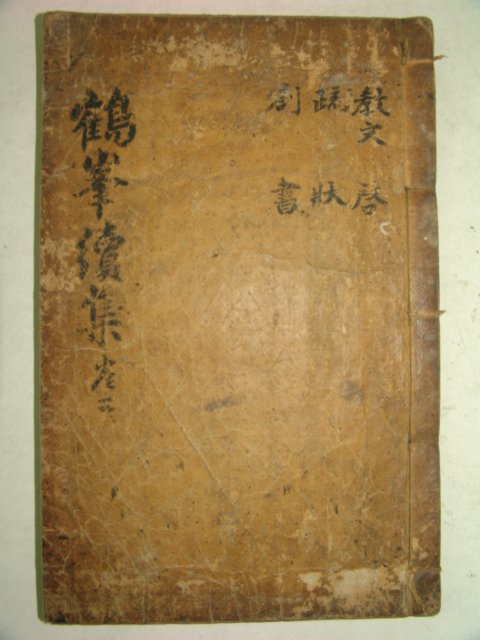 教文 啓
疏 狀
劄 書
鶴峯續集 卷二